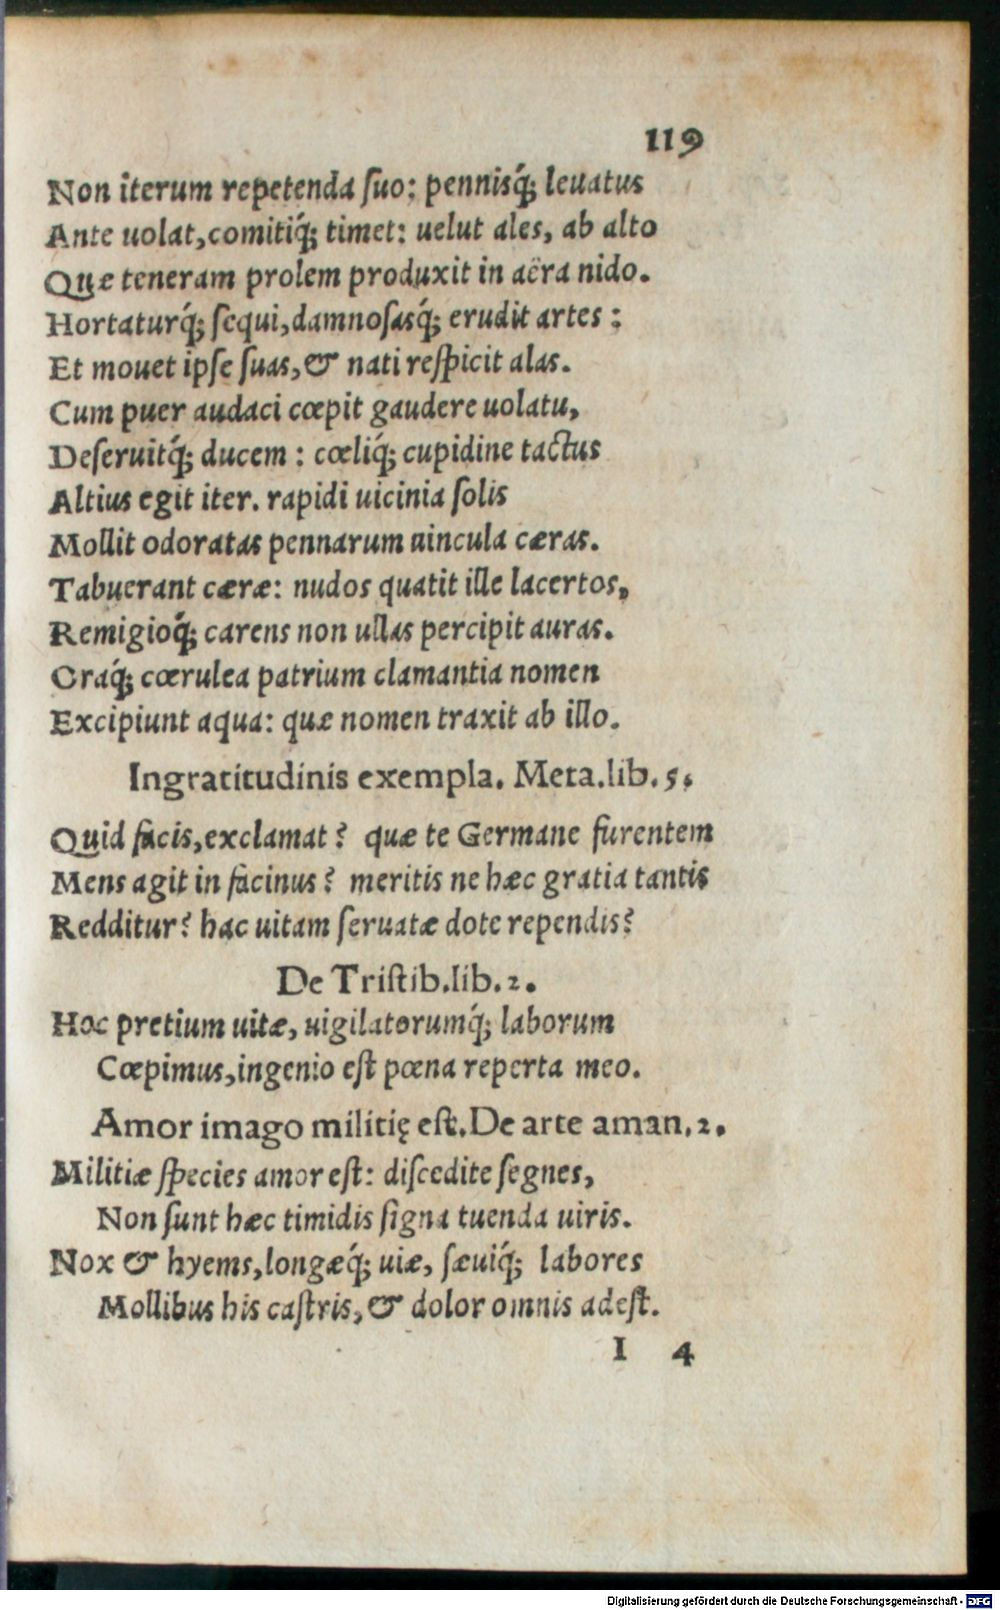 119
Non iterum repetenda ſuo: pennisq́; leuatus
Ante uolat, comitiq́; timet: uelut ales, ab alto
Quæ teneram prolem produxit in aëra nido.
Hortaturq́; ſequi, damnoſasq́; erudit artes:
Et mouet ipſe ſuas, & nati reſpicit alas.
Cum puer audaci cœpit gaudere uolatu,
Deſeruitq́; ducem: cœliq́; cupidine tactus
Altius egit iter. rapidi uicinia ſolis
Mollit odoratas pennarum uincula cæras.
Tabuerant cæræ: nudos quatit ille lacertos,
Remigioq́; carens non ullas percipit auras.
Oraq́; cœrulea patrium clamantia nomen
Excipiunt aqua: quæ nomen traxit ab illo.
Ingratitudinis exempla. Meta.lib.5.
Quid facis, exclamat? quæ te Germane furentem
Mens agit in facinus? meritis ne hæc gratia tantis
Redditur? hac uitam ſeruatæ dote rependis?
De Triſtib.lib.2.
Hoc pretium uitæ, uigilatorumq́; laborum
Cœpimus, ingenio eſt pœna reperta meo.
Amor imago militię eſt. De arte aman.2.
Militiæ ſpecies amor eſt: diſcedite ſegnes,
Non ſunt hæc timidis ſigna tuenda uiris.
Nox & hyems, longæq́; uiæ, ſæuiq́; labores
Mollibus his caſtris, & dolor omnis adeſt.
I 4
Digitalisierung gefördert durch die Deutsche Forschungsgemeinschaft - DFG